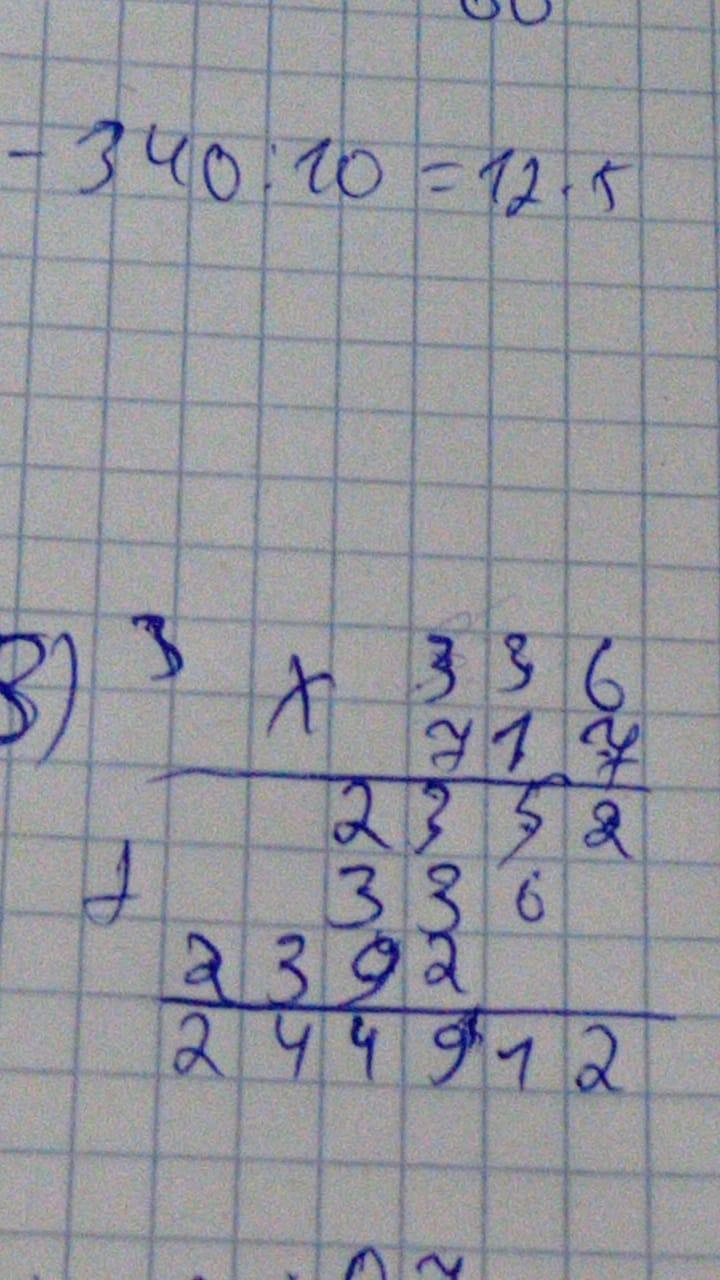 - 340 : 10 = 12 . 5
В) 3
x 336
717
2352
+ 336
2392
244912